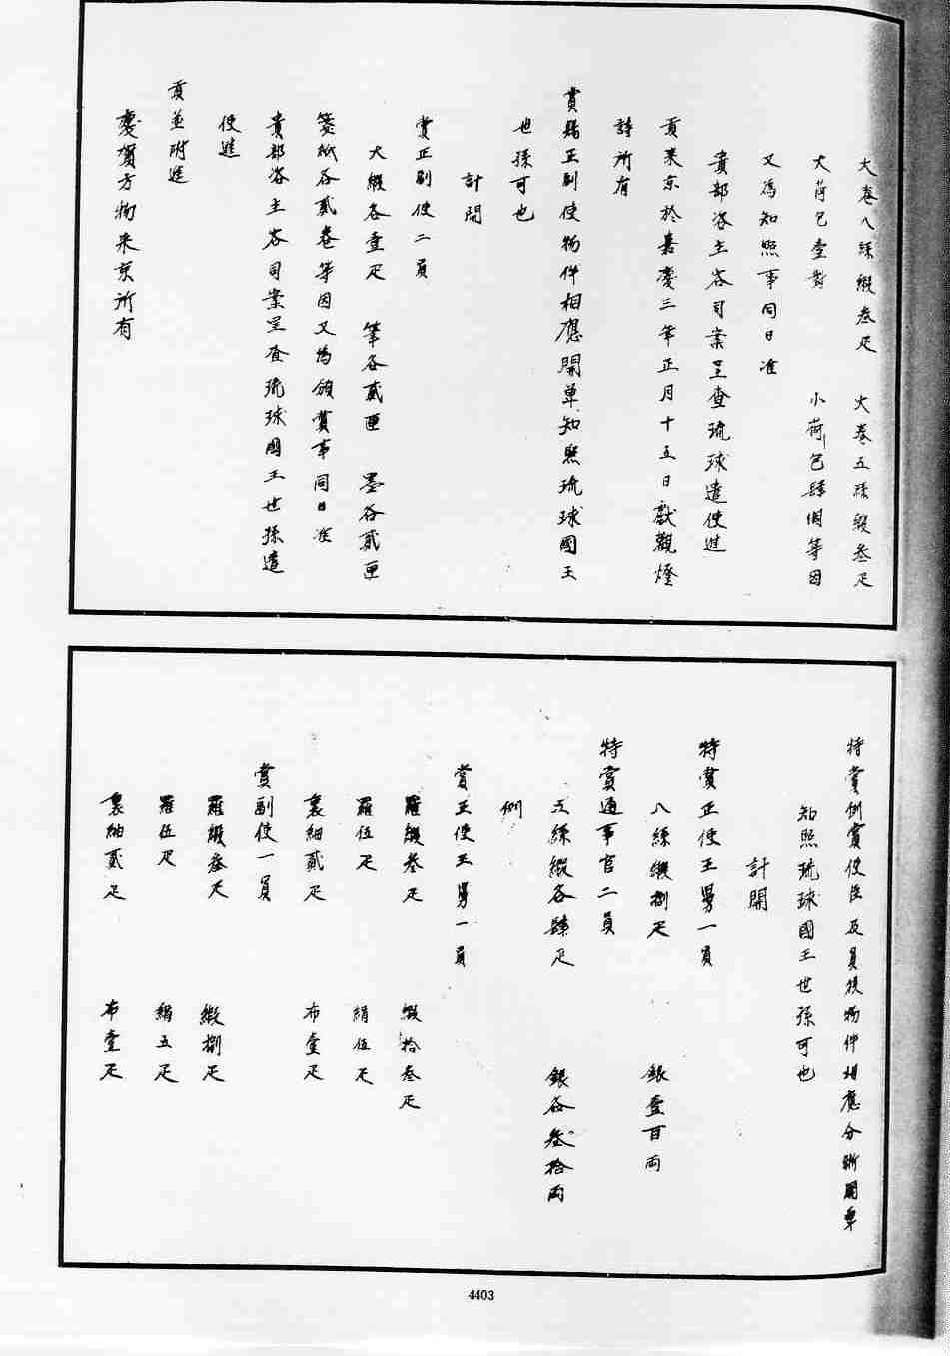 大卷八絲緞叁疋　大卷五絲緞叁疋
大荷包壹對　小荷包肆個等因
又為知照事同日准
貴部咨主客司案呈查琉球遣使進
貢來京於嘉慶三年正月十五日獻觀燈
詩所有
賞賜正副使物件相應開單知照琉球國王
世孫可也
計開
賞正副使二員
大緞各壹疋　筆各貳匣　墨各貳匣
箋紙各貳卷等因又為頒賞事同日准
貴部咨主客司案呈查琉球國王世孫遣
使進
貢並附進
慶賀方物來京所有
特賞例賞使臣及員役物件相應分晰開單
知照琉球國王世孫可也
計開
特賞正使王 一員
八絲緞捌疋　銀壹百兩
特賞通事官二員
五絲緞各肆疋　銀各叁拾兩
例
賞正使王 一員
羅緞叁疋　緞拾叁疋
羅伍疋　絹伍疋
裏紬貳疋　布壹疋
賞副使一員
羅緞叁疋　緞捌疋
羅伍疋　絹五疋
裏紬貳疋　布壹疋
4403